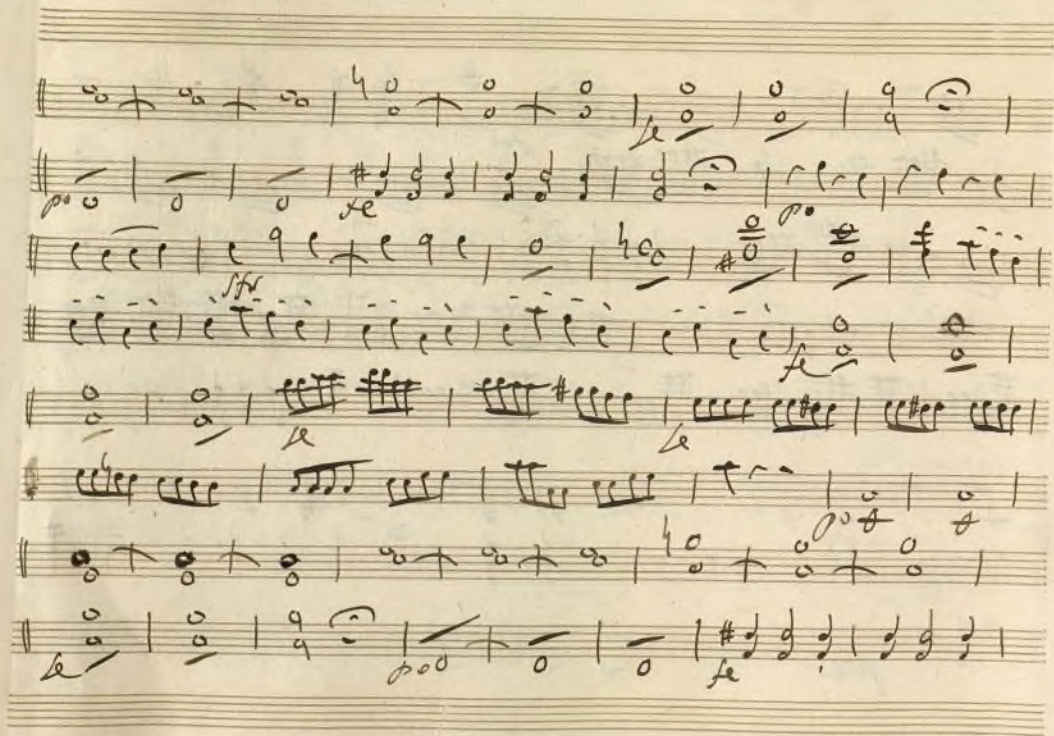 fe
po fe po
sfz
fe
fe fe
po
fe po fe